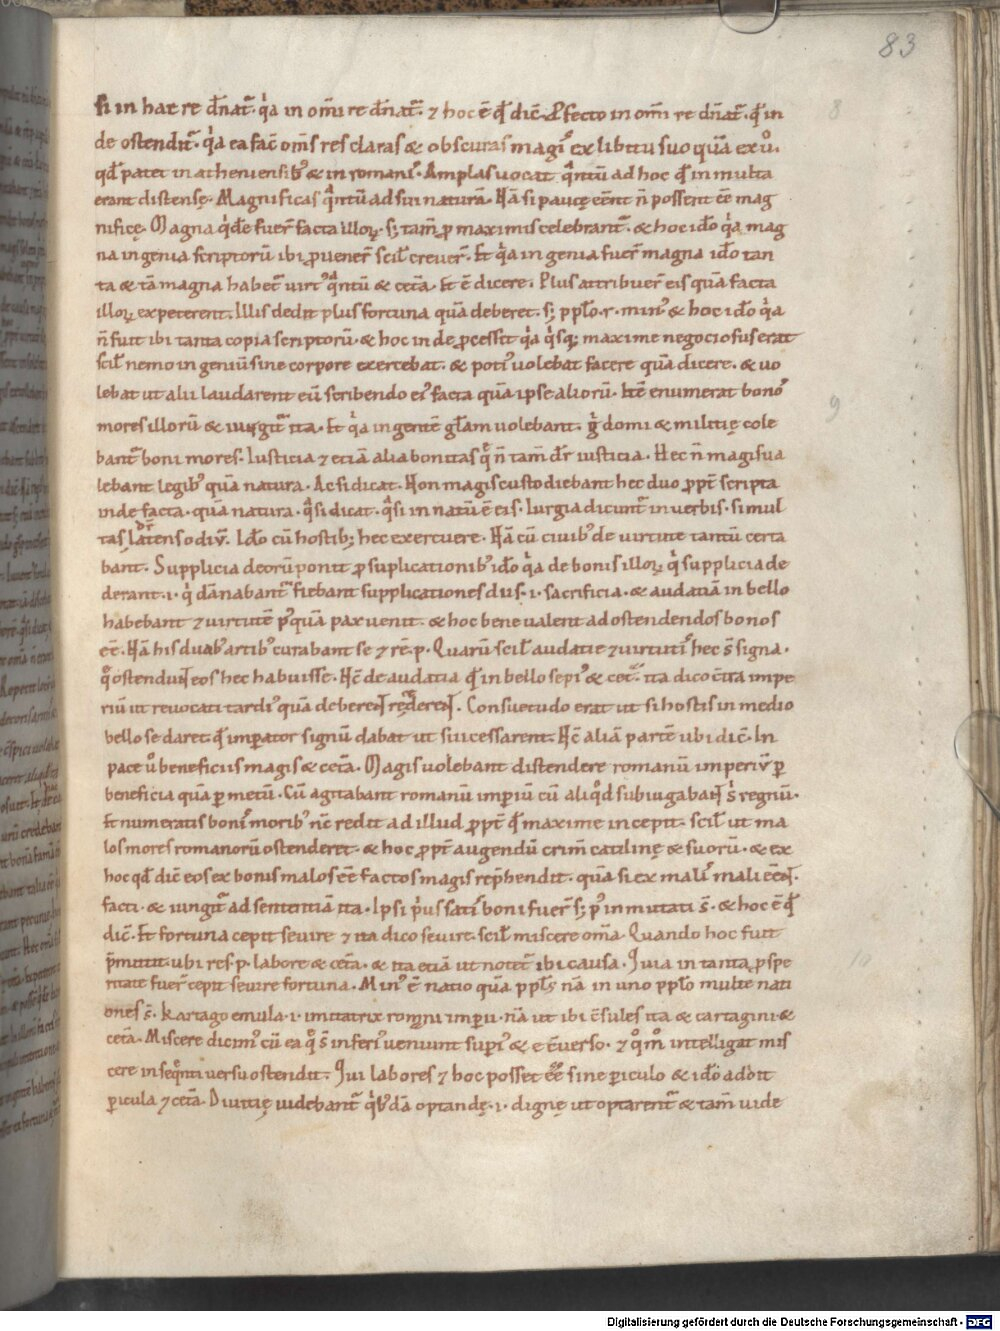 83
si in hac re dn̄at᷑. q̇a in om̄i re dn̄at᷑. ⁊ hoc ē qđ dic̄. Profecto in om̄i re dn̄at᷑. qđ in
de ostendit᷑. q̇a ea fac̄ om̄s res claras & obscuras magis ex libitu suo quā ex uo.
8
qđ patet in atheniensib; & in romanis. Amplas uocat q̄ntū ad hoc qđ in multa
erant distensę. Magnificas q̄ntū ad sui naturā. Nā si paucę eēnt n̄ possent eē mag
nificę. Magna q̇dē fuer̄ facta illoꝝ. s; tam̄ p̱ maximis celebrant᷑. & hoc iđo q̇a mag
na ingenia scriptorū ibi ꝓuener̄ scil̄ creuer̄. Et q̇a ingenia fuer̄ magna iđo tan
ta & tā magna habet᷑ uirt᷒ q̄ntū & cet̄a. Et ē dicere. Plus attribuer̄ eis quā facta
illoꝝ expeterent. Illis dedit plus fortuna quā deberet. s; pp̄lo .r. min᷒ & hoc iđo q̇a
n̄ fuit ibi tanta copia scriptorū. & hoc inde ꝓcessit q̇a q̇sq; maxime negociosus erat
scil̄ nemo ingeniū sine corpore exercebat. & poti᷒ uolebat facere quā dicere. & uo
lebat ut alii laudarent eū scribendo ei᷒ facta quā ipse aliorū. Itē enumerat bonos
9
mores illorū & iungit᷑ ita. Et q̇a ingentē gl̄am uolebant. g̊ domi & militię cole
bant᷑ boni mores. Iusticia ⁊ etiā alia bonitas q̄ n̄ tam̄ dr̄ iusticia. Hec n̄ magis ua
lebant legib; quā natura. Ac si dicat. Non magis custodiebant hec duo ꝓpt̄ scripta
inde facta. quā natura. q̄si dicat. q̄si in natū ē eis. Iurgia dicunt᷑ in uerbis. simul
tas dr̄ latens odiū. Iđo cū hostib; hec exercuere. Nā cū ciuib; de uirtute tantū certa
bant. Supplicia deorū ponit ꝓ suplicationib; iđo q̇a de bonis illoꝝ q̇ supplicia de
derant .i. q̇ dānabant᷑ fiebant supplicationes diis .i. sacrificia. & audatiā in bello
habebant ⁊ uirtutē p᷒quā pax uenit. & hoc bene ualent ad ostendendos bonos
eē. Nā his duab; artib; curabant se ⁊ rē .p. Quarū scil̄ audatie ⁊ uirtutis hec s̄ signa.
q̄ ostendunt eos hec habuisse. Hc̄ de audatia qđ in bello sepi᷒ & cet̄. ita dico c̄tra impe
riū ut reuocati tardi᷒ quā deberent redderent. Consuetudo erat ut si hostis in medio
bello se daret qđ imperator signū dabat ut sui cessarent. Hc̄ aliā partē ubi dic̄. In
pace u̇o beneficiis magis & cet̄a. Magis uolebant distendere romanū imperiū ꝑ
beneficia quā ꝑ metū. Cū agitabant romanū imꝑiū cū aliq̊d subiugabant s̄ regnū.
Et numeratis bonis morib; nc̄ redit ad illud ꝓpt̄ qđ maxime incepit. scil̄ ut ma
los mores romanorū ostenderet. & hoc ꝓpt̄ augendū crim̄ catilinę & suorū. & ex
hoc qđ dic̄ eos ex bonis malos eē factos magis rep̄hendit. quā si ex malis mali eēnt
facti. & iungit᷑ ad sententiā ita. Ipsi ṗus satis boni fuer̄ s; p᷒ inmutati s̄. & hoc ē qđ
dic̄. Et fortuna cepit seuire ⁊ ita dico seuire. scil̄ miscere om̄a. Quando hoc fuit
p̄mittit. ubi res .p. labore & cet̄a. & ita etiā ut notet᷑ ibi causa. Quia in tanta ꝓspe
10
ritate fuer̄ cepit seuire fortuna. Min᷒ ē natio quā pp̄ls nā in uno pp̄lo multe nati
ones s̄. Kartago emula .i. imitatrix romani imperii. nā ut ibi c̄sules ita & cartagini &
cet̄a. Miscere dicim᷒ cū ea q̄ s̄ inferi᷒ ueniunt superi᷒ & e c̄uerso. ⁊ qm̄ intelligat mis
cere in seq̄nti uersu ostendit. Qui labores ⁊ hoc posset eē sine periculo & iđo addit
pericula ⁊ cet̄a. Diuitię uidebant᷑ q̇b;dā optandę .i. dignę ut optarent᷑ & tam̄ uide
Digitalisierung gefördert durch die Deutsche Forschungsgemeinschaft - DFG